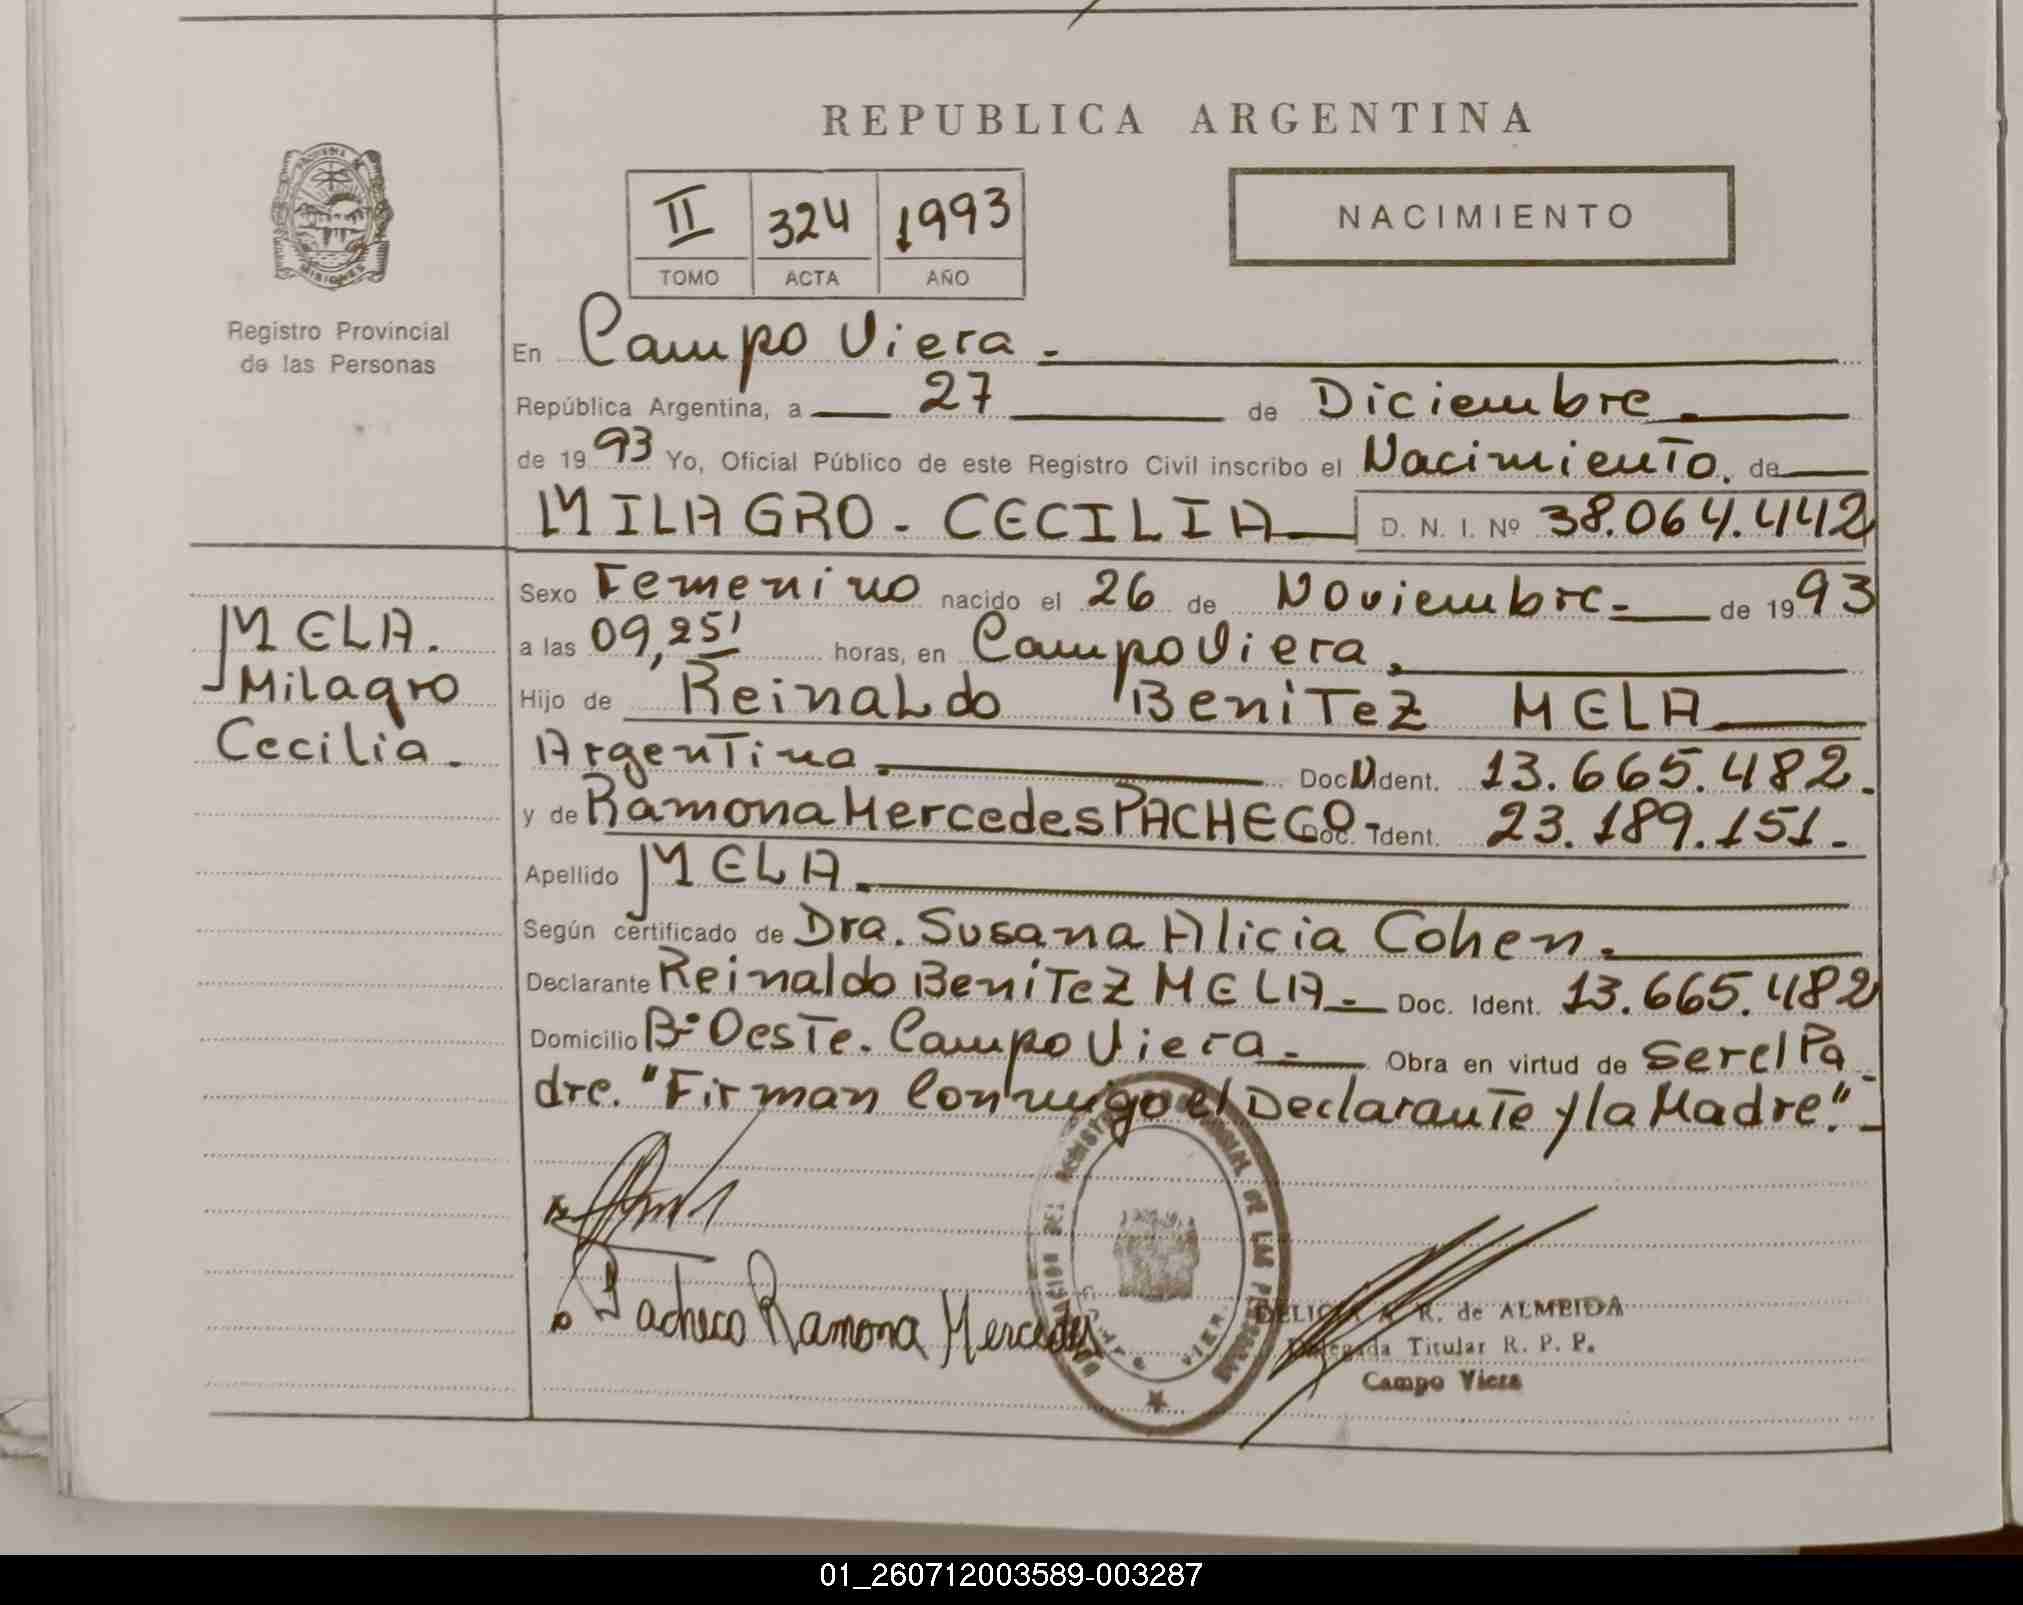 REPUBLICA ARGENTINA
II 324 1993
TOMO ACTA AÑO
NACIMIENTO
Registro Provincial
de las Personas
MISIONES
En Campo Viera.-
República Argentina, a 27 de Diciembre.
de 1993 Yo, Oficial Público de este Registro Civil inscribo el Nacimiento. de
MILAGRO-CECILIA D. N. I. Nº 38.064.442
MELA.
Milagro
Cecilia.
Sexo Femenino nacido el 26 de Noviembre.- de 1993
a las 09,25' horas, en Campo Viera.
Hijo de Reinaldo BeniTeZ MELA
ArgenTino. Doc. N Ident. 13.665.482.
y de Ramona Mercedes PACHECO.- Doc. Ident. 23.189.151.-
Apellido MELA.
Según certificado de Dra. Susana Alicia Cohen.
Declarante Reinaldo BeniTeZ MELA.- Doc. Ident. 13.665.482
Domicilio Bº OesTe. Campo Viera.- Obra en virtud de ser el Pa-
dre. "Firman Conmigo el DeclaranTe y la Madre".-
Pacheco Ramona Mercedes
R. de ALMEIDA
Delegada Titular R. P. P.
Campo Viera
01_260712003589-003287